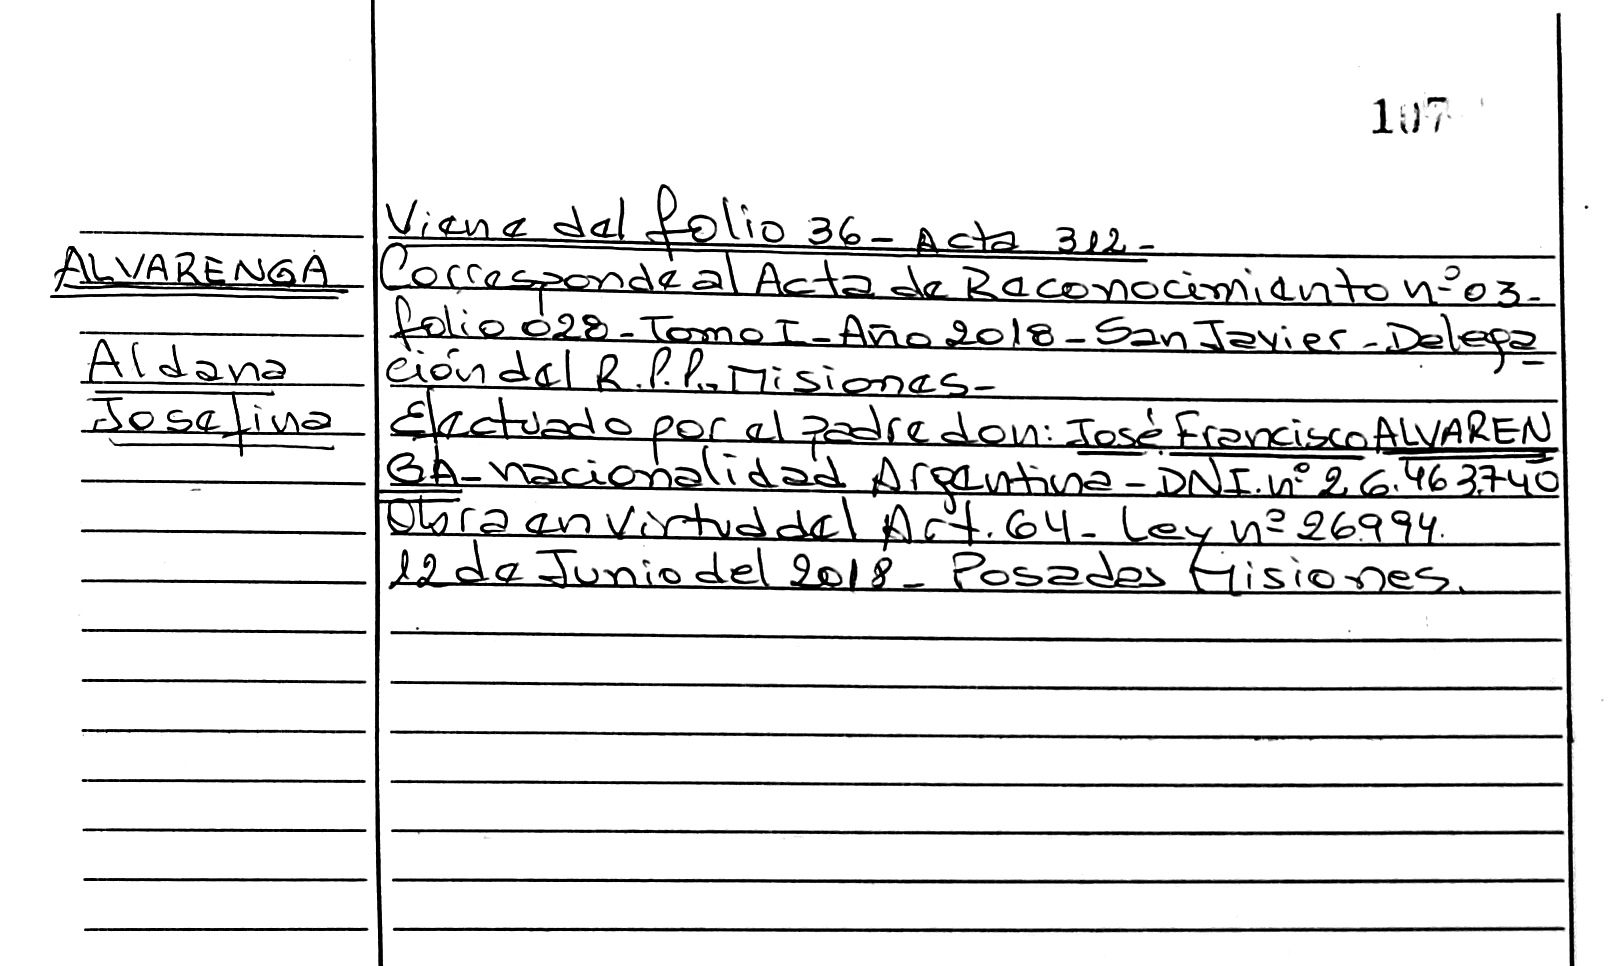 107
Viene del folio 36- Acta 312-
ALVARENGA
Corresponde al Acta de Reconocimiento nº 03-
folio 028-Tomo I-Año 2018-San Javier-Delega
Aldana
ción del R.P.P. Misiones-
Josefina
Efectuado por el padre don: José Francisco ALVAREN
GA-nacionalidad Argentina-DNI.nº 26.463.740
Obra en virtud del Art. 64- Ley nº 26994.
12 de Junio del 2018- Posadas Misiones.